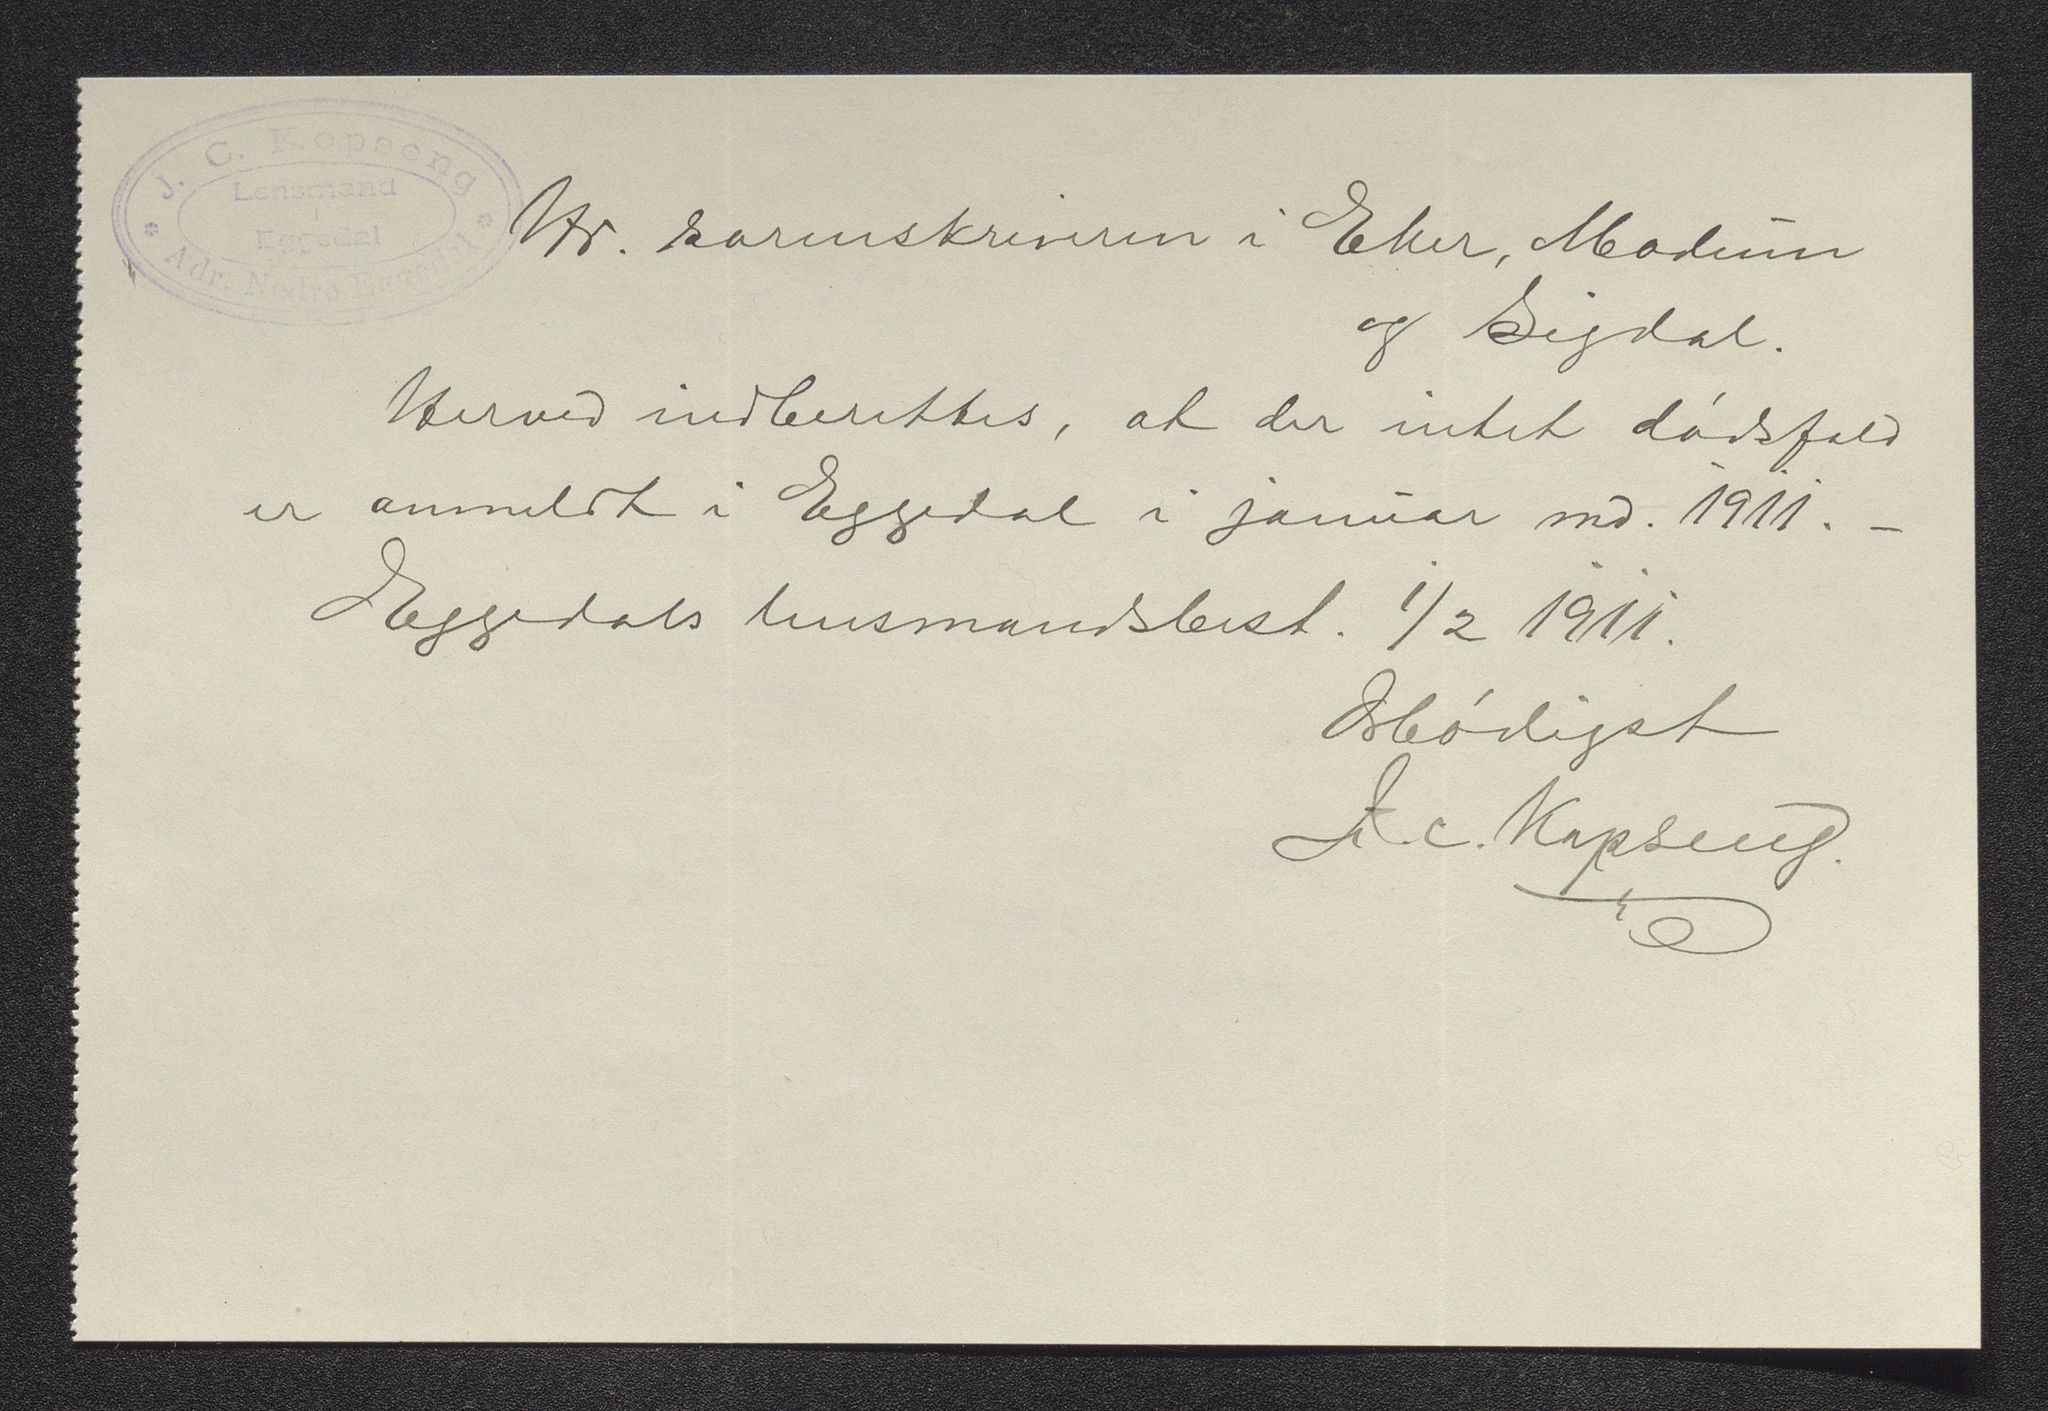 J. C. Kopseng
Lensmand
i
Eggedal
Adr. Nedre Eggedal
Hr. sorenskriveren i Eker, Modum
og Sigdal.
Herved indberettes, at der intet dödsfald
er anmeldt i Eggedal i januar md. 1911. –
Eggedals lensmandsbest. 1/2 1911.
Ærbödigst
J. C. Kopseng.